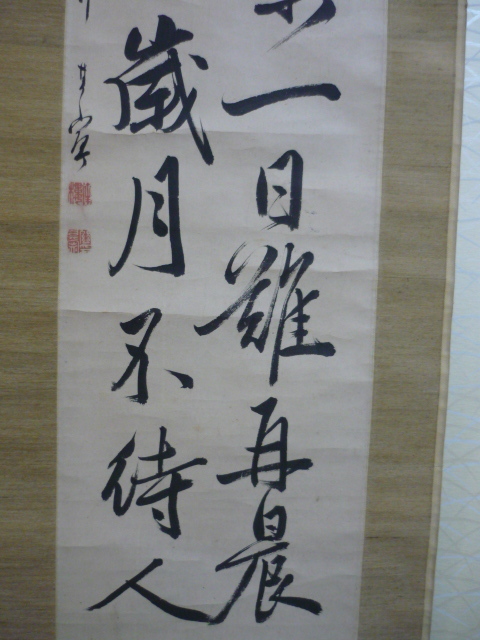 一日難再晨
歲月不待人